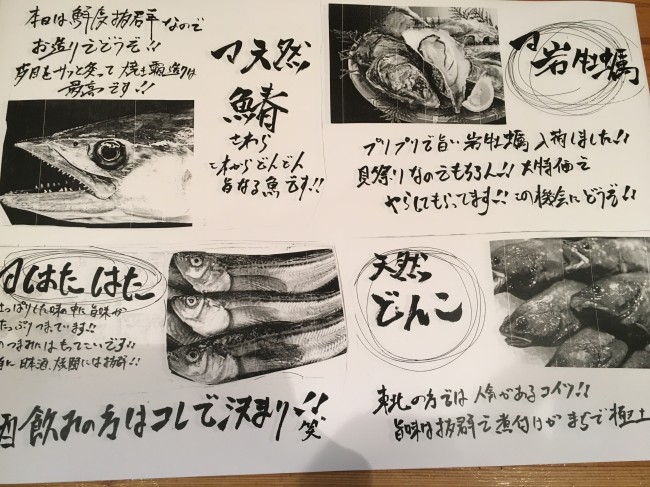 本日は鮮度抜群なので
お造りでどうぞ!!
皮目をサッと炙って焼き霜造りは
最高です!!
天然
鰆
さわら
これからどんどん
旨なる魚です!!
岩牡蠣
プリプリで旨い岩牡蠣入荷しました!!
貝祭りなのでもちろん!!大特価で
やらしてもらってます!!この機会にどうぞ!!
はたはた
さっぱりした味の中に旨味が
たっぷりつまでいます!!
のつまみにはもってこいです!!
に日本酒、焼酎には抜群!!
酒飲みの方はコレで決まり!!
笑
天然
どんこ
東北の方では人気があるコイツ!!
旨味は抜群で煮付けがまぢで極上